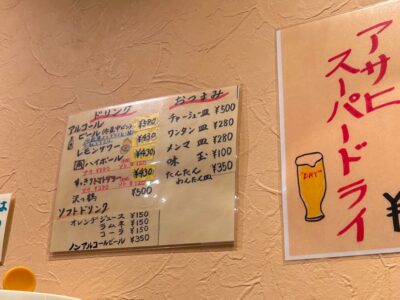 ドリンク
アルコール
ビール ¥380
¥430
レモンサワー ¥430
ハイボール ¥430
¥500
沢の鶴
ソフトドリンク
オレンジジュース ¥150
ラムネ ¥150
コーラ ¥150
ノンアルコールビール ¥350
おつまみ
チャーシュー皿 ¥500
ワンタン皿 ¥280
メンマ皿 ¥280
味玉 ¥100
たんたんわんたん皿 ¥350
アサヒ
スーパードライ
"DRY"
¥
は